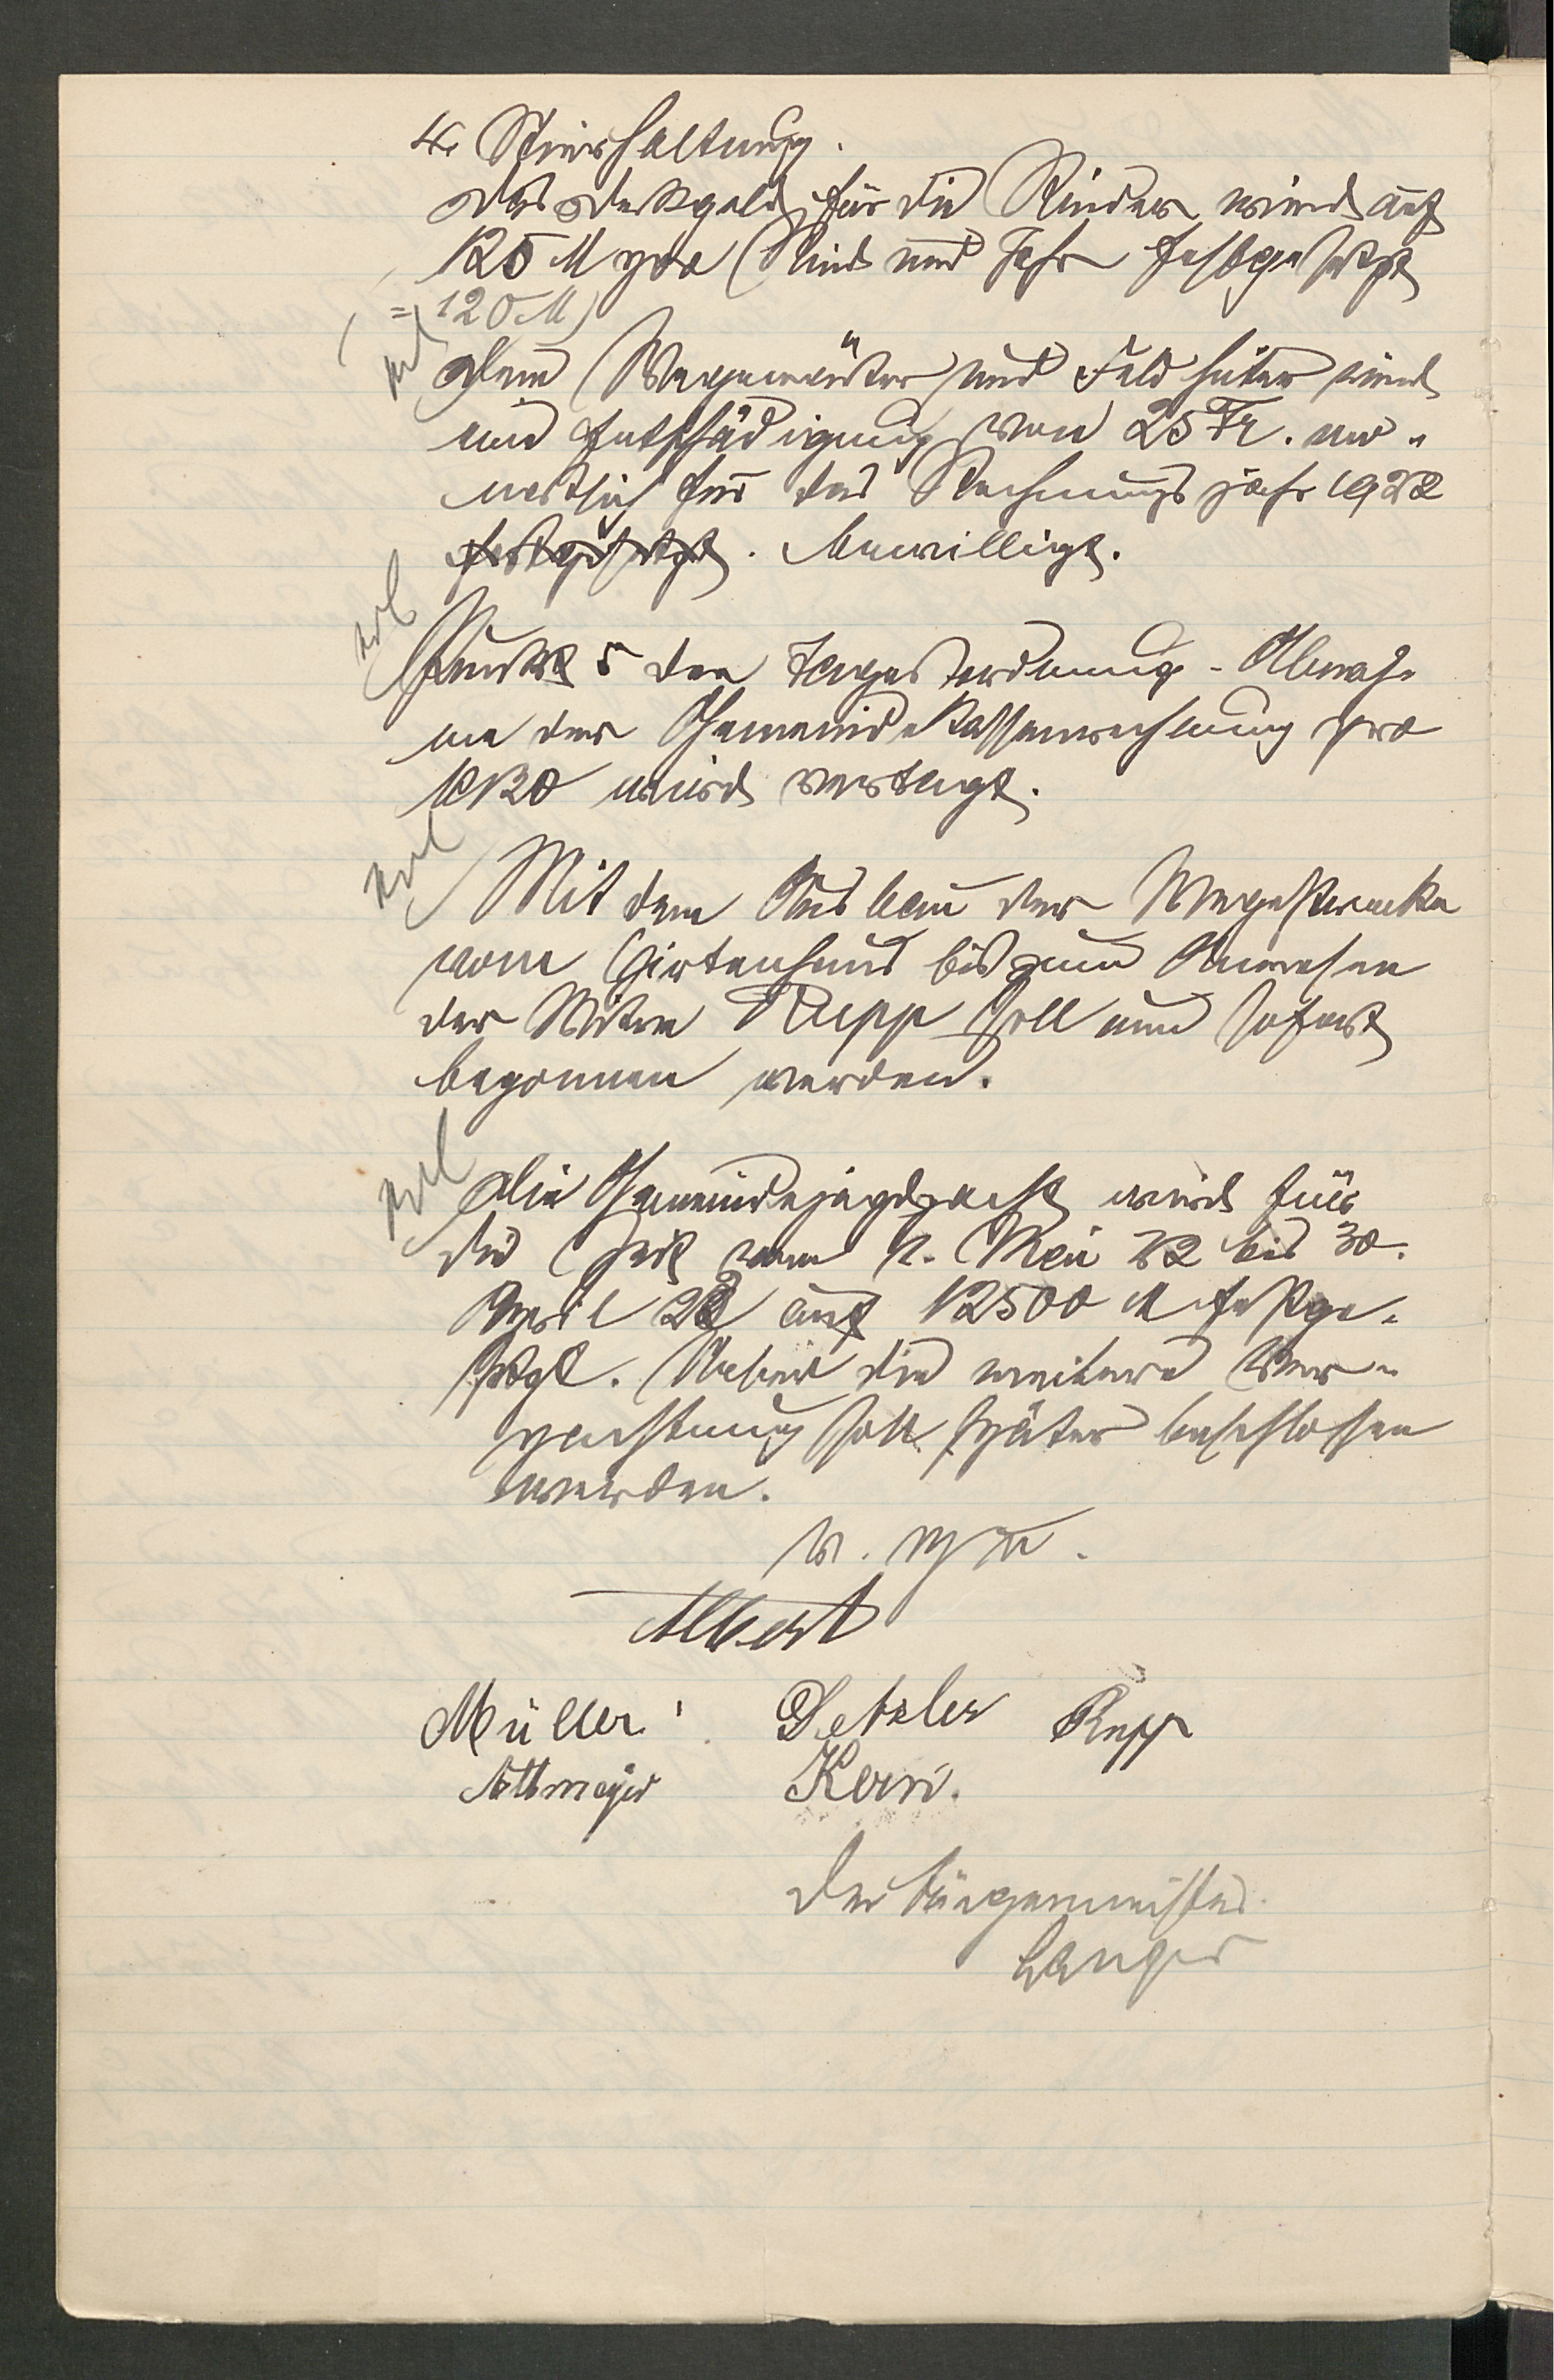 4. Stierhaltung.
Das Deckgeld für die Rinder wird auf
125 M pro Rind und Jahr festgesetzt
(= 120 M)
Dem Wegewärter und Feldhüter wird
eine Entschädigung von 25 Fr. mo-
natlich für das Rechnungsjahr 1922
festgesetzt. bewilligt.
erl
Punkt 5 der Tagesordnung - Abnah-
me der Gemeindekassenrechnung pro
1920 wird vertagt.
erl
Mit dem Ausbau der Wegestrecke
vom Hirtenhaus bis zum Anwesen
der Witwe Rupp soll nun sofort
begonnen werden.
erl
Die Gemeindejagdpacht wird für
die Zeit vom 1. Mai 22 bis 30.
April 23 auf 12500 M festge-
setzt. Ueber die weitere Ver-
pachtung soll später beschlossen
werden.
v. g. u.
Albert
Müller Detzler Rupp
Altmeyer Kern.
Der Bürgermeister
Langer